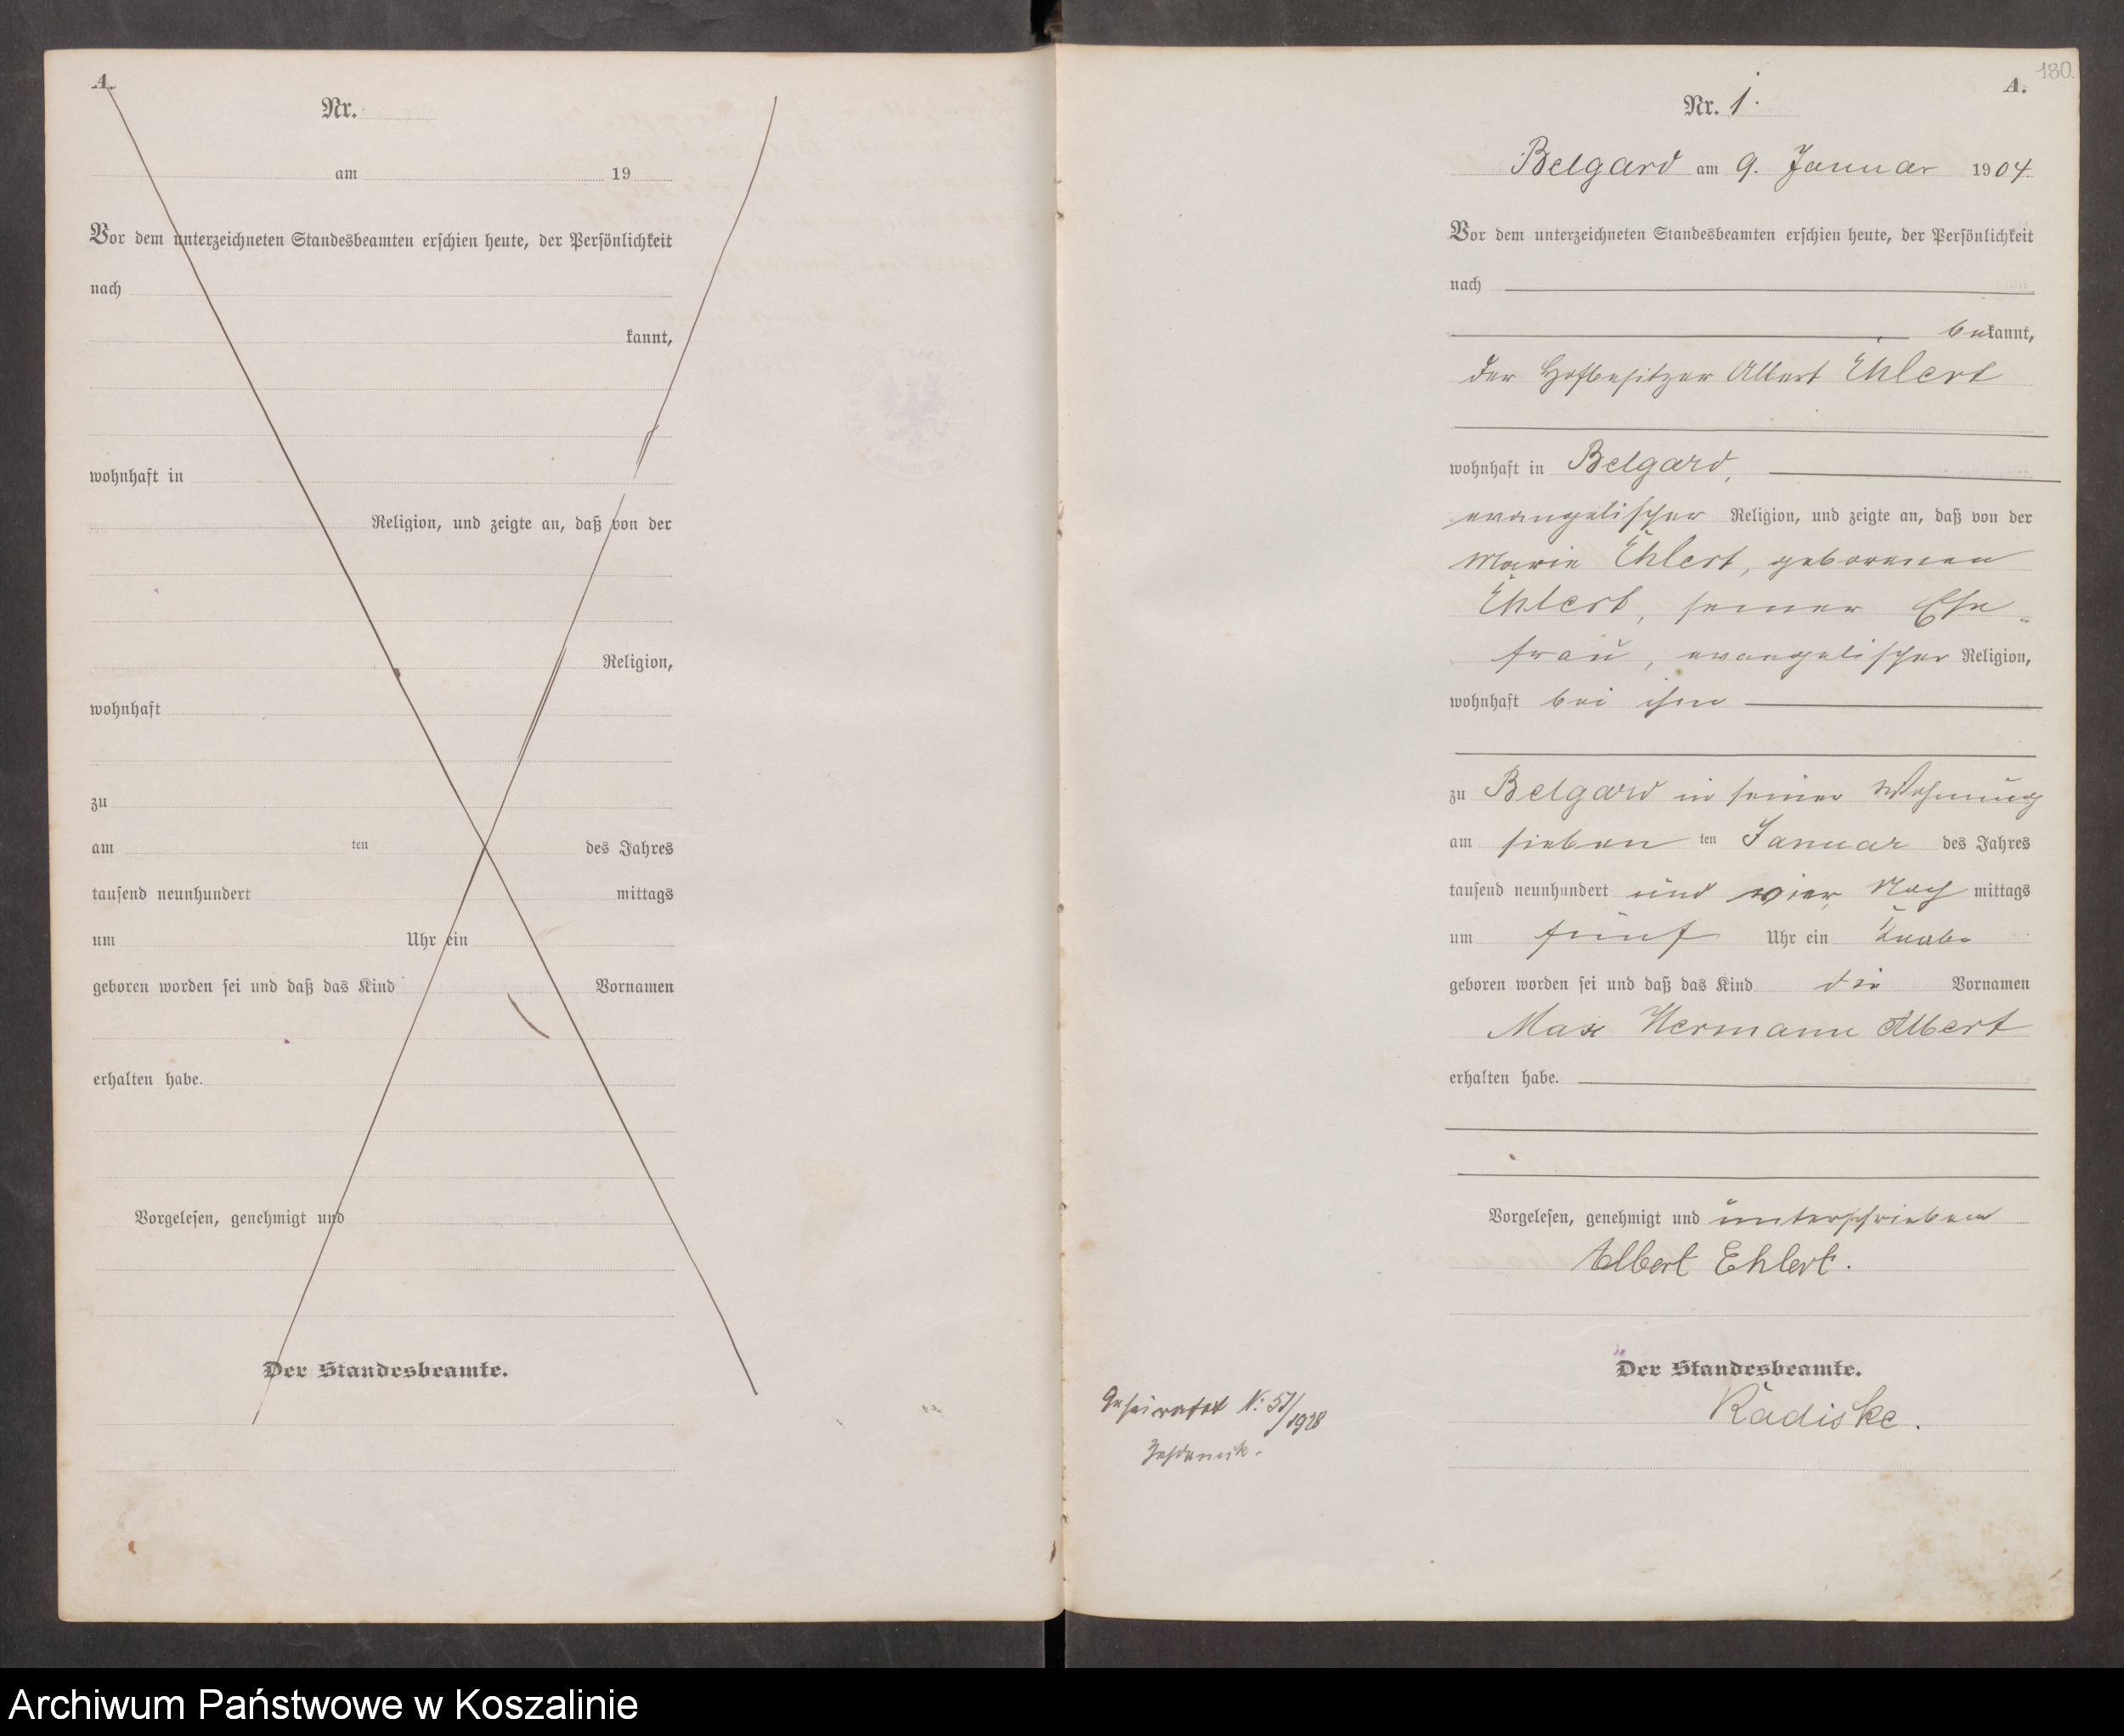 A.
Nr.
am 19
Vor dem unterzeichneten Standesbeamten erschien heute, der Persönlichkeit
nach
kannt,
wohnhaft in
Religion, und zeigte an, daß von der
Religion,
wohnhaft
zu
am ten des Jahres
tausend neunhundert mittags
um Uhr ein
geboren worden sei und daß das Kind Vornamen
erhalten habe.
Vorgelesen, genehmigt und
Der Standesbeamte.
180.
A.
Nr. 1.
Belgard am 9. Januar 1904
Vor dem unterzeichneten Standesbeamten erschien heute, der Persönlichkeit
nach
bekannt,
der Hofbesitzer Albert Ehlert
wohnhaft in Belgard,
evangelischer Religion, und zeigte an, daß von der
Marie Ehlert, geborenen
Ehlert, seiner Ehe-
frau, evangelischer Religion,
wohnhaft bei ihm
zu Belgard in seiner Wohnung
am sieben ten Januar des Jahres
tausend neunhundert und vier Nach mittags
um fünf Uhr ein Knabe
geboren worden sei und daß das Kind die Vornamen
Max Hermann Albert
erhalten habe.
Vorgelesen, genehmigt und unterschrieben
Albert Ehlert.
Der Standesbeamte.
Radiske.
Geheiratet N: /1928
Archiwum Państwowe w Koszalinie